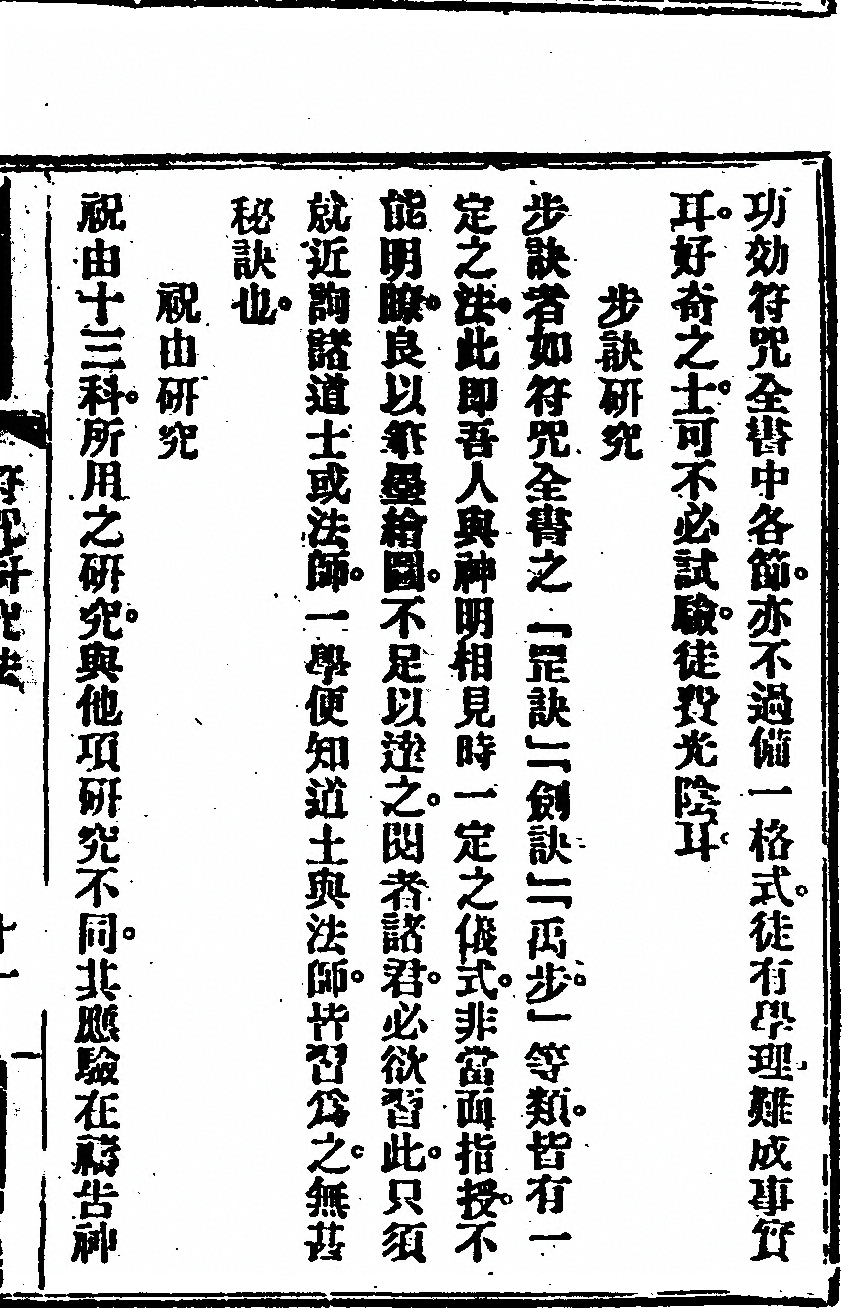 功効符咒全書中各節。亦不過備一格式。徒有學理。難成事實
耳。好奇之士。可不必試驗。徒費光陰耳。
步訣研究
步訣者如符咒全書之「罡訣」「劍訣」「禹步」等類。皆有一
定之法。此即吾人與神明相見時一定之儀式。非當面指授。不
能明瞭。良以筆墨繪圖。不足以達之。閱者諸君。必欲習此。只須
就近詢諸道士或法師。一學便知道士與法師。皆習爲之。無甚
秘訣也。
祝由研究
祝由十三科。所用之研究。與他項研究不同。其應驗在禱告神
符咒研究法
十一